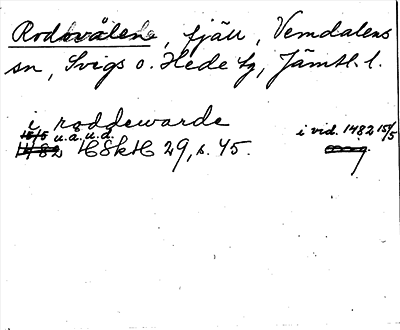 Rodovålen, fjäll, Vemdalens
sn, Svegs o. Hede tg, Jämtl. l.
i roddewarde
15/5 u.å. u.d.
1482 HSkH 29, s. 45.
i vid. 1482 15/5